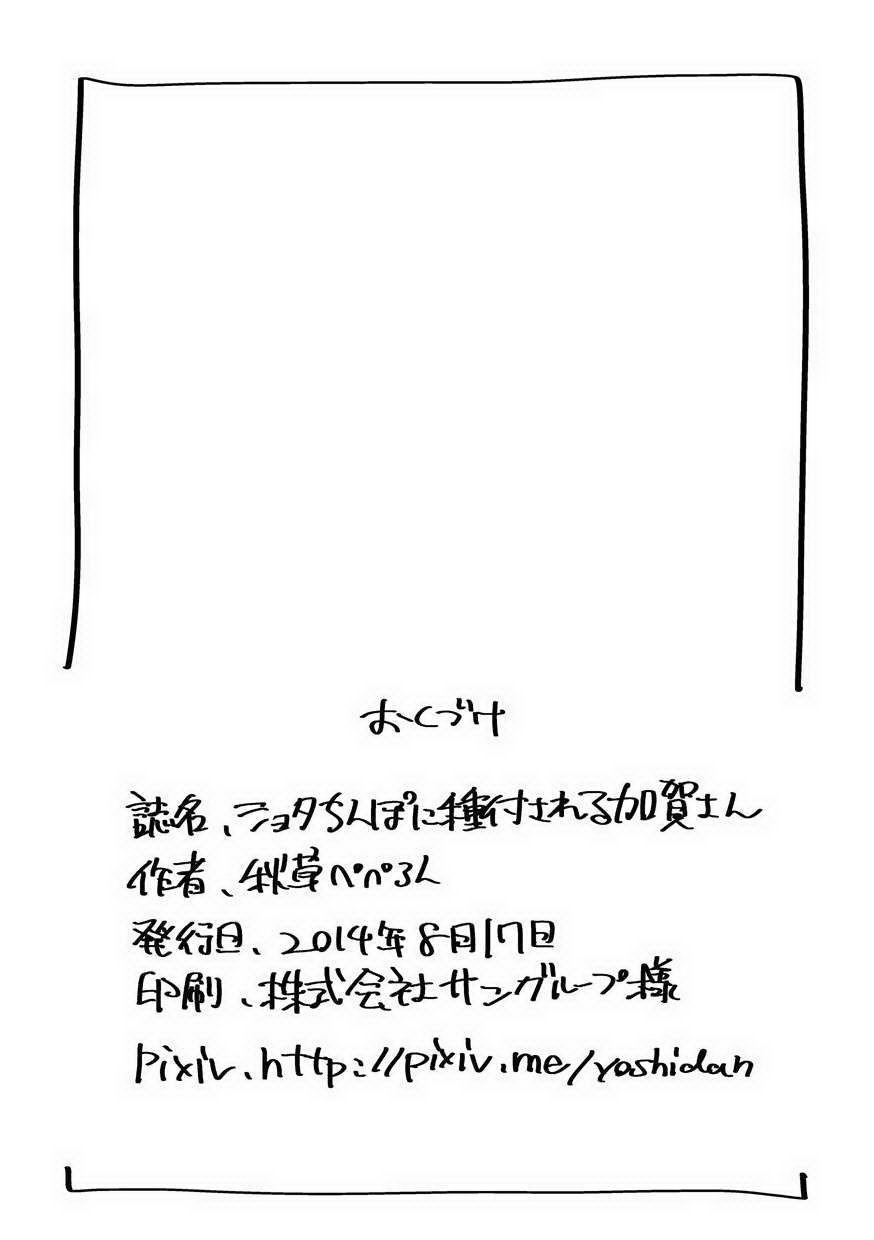 おくづけ
誌名、ショタちんぽに種付される加賀さん
作者、秋草ぺぺろん
発行日、2014年8月17日
印刷、株式会社サングループ様
pixiv、http://pixiv.me/yoshidan